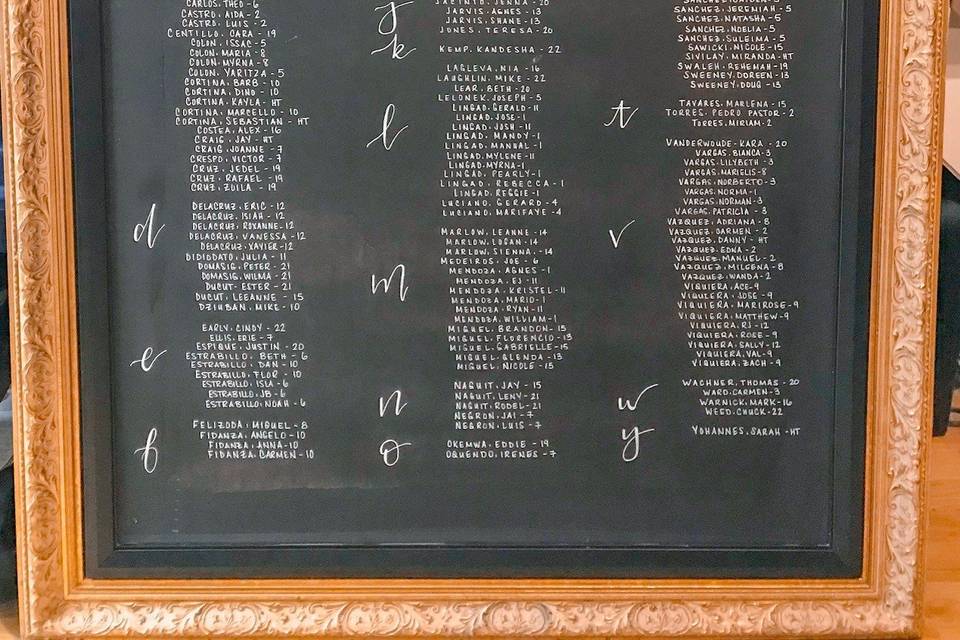 CARLOS, THEO - 6
CASTRO, AIDA - 2
CASTRO, LUIS - 2
CENTILLO, CARA - 19
COLON, ISSAC - 5
COLON, MARIA - 8
COLON, MYRNA - 8
COLON, YARITZA - 5
CORTINA, BARB - 10
CORTINA, DINO - 10
CORTINA, KAYLA - HT
CORTINA, MARCELLO - 10
CORTINA, SEBASTIAN - HT
COSTEA, ALEX - 16
CRAIG, JAY - HT
CRAIG, JOANNE - 7
CRESPO, VICTOR - 7
CRUZ, JEDEL - 19
CRUZ, RAFAEL - 19
CRUZ, ZUILA - 19
d
DELACRUZ, ERIC - 12
DELACRUZ, ISIAH - 12
DELACRUZ, ROXANNE - 12
DELACRUZ, VANESSA - 12
DELACRUZ, XAVIER - 12
DIDIODATO, JULIA - 11
DOMASIG, PETER - 21
DOMASIG, WILMA - 21
DUCUT, ESTER - 21
DUCUT, LEEANNE - 15
DZIUBAN, MIKE - 10
e
EARLY, CINDY - 22
ELLIS, ERIE - 7
ESPIQUE, JUSTIN - 20
ESTRABILLO, BETH - 6
ESTRABILLO, DAN - 10
ESTRABILLO, FLOR - 10
ESTRABILLO, ISLA - 6
ESTRABILLO, JB - 6
ESTRABILLO, NOAH - 6
f
FELIZODA, MIGUEL - 8
FIDANZA, ANGELO - 10
FIDANZA, ANNA - 10
FIDANZA, CARMEN - 10
j
JACINTO, JENNA - 20
JARVIS, AGNES - 13
JARVIS, SHANE - 13
JONES, TERESA - 20
k
KEMP, KANDESHA - 22
l
LAGLEVA, NIA - 16
LAUGHLIN, MIKE - 22
LEAR, BETH - 20
LELONEK, JOSEPH - 5
LINGAD, GERALD - 11
LINGAD, JOSE - 1
LINGAD, JOSH - 11
LINGAD, MANDY - 1
LINGAD, MANUAL - 1
LINGAD, MYLENE - 11
LINGAD, MYRNA - 1
LINGAD, PEARLY - 1
LINGAD, REBECCA - 1
LINGAD, REGGIE - 1
LUCIANO, GERARD - 4
LUCIANO, MARIFAYE - 4
m
MARLOW, LEANNE - 14
MARLOW, LOGAN - 14
MARLOW, SIENNA - 14
MEDEIROS, JOE - 6
MENDOZA, AGNES - 1
MENDOZA, EJ - 11
MENDOZA, KRISTEL - 11
MENDOZA, MARIO - 1
MENDOZA, RYAN - 11
MENDOZA, WILLIAM - 1
MIGUEL, BRANDON - 15
MIGUEL, FLORENCIO - 13
MIGUEL, GABRIELLE - 15
MIGUEL, GLENDA - 13
MIGUEL, NICOLE - 15
n
NAGUIT, JAY - 15
NAGUIT, LENY - 21
NAGUIT, RODEL - 21
NEGRON, JAI - 7
NEGRON, LUIS - 7
o
OKEMWA, EDDIE - 19
OQUENDO, IRENES - 7
SANCHEZ, JEREMIAH - 5
SANCHEZ, NATASHA - 5
SANCHEZ, NOELIA - 5
SANCHEZ, SULEIMA - 5
SAWICKI, NICOLE - 15
SIVILAY, MIRANDA - HT
SWALEH, REHEMAH - 19
SWEENEY, DOREEN - 13
SWEENEY, DOUG - 13
t
TAVARES, MARLENA - 15
TORRES, PEDRO PASTOR - 2
TORRES, MIRIAM - 2
v
VANDERWOUDE, KARA - 20
VARGAS, BIANCA - 3
VARGAS, LILYBETH - 3
VARGAS, MARIELIS - 8
VARGAS, NORBERTO - 3
VARGAS, NORMA - 1
VARGAS, NORMAN - 3
VARGAS, PATRICIA - 3
VAZQUEZ, ADRIANA - 8
VAZQUEZ, CARMEN - 2
VAZQUEZ, DANNY - HT
VAZQUEZ, EDNA - 2
VAZQUEZ, MANUEL - 2
VAZQUEZ, MILGENA - 8
VAZQUEZ, WANDA - 2
VIQUIERA, ACE - 9
VIQUIERA, JOSE - 9
VIQUIERA, MARIROSE - 9
VIQUIERA, MATTHEW - 9
VIQUIERA, RJ - 12
VIQUIERA, ROSE - 9
VIQUIERA, SALLY - 12
VIQUIERA, VAL - 9
VIQUIERA, ZACH - 9
w
WACHNER, THOMAS - 20
WARD, CARMEN - 3
WARNICK, MARK - 16
WEED, CHUCK - 22
y
YOHANNES, SARAH - HT